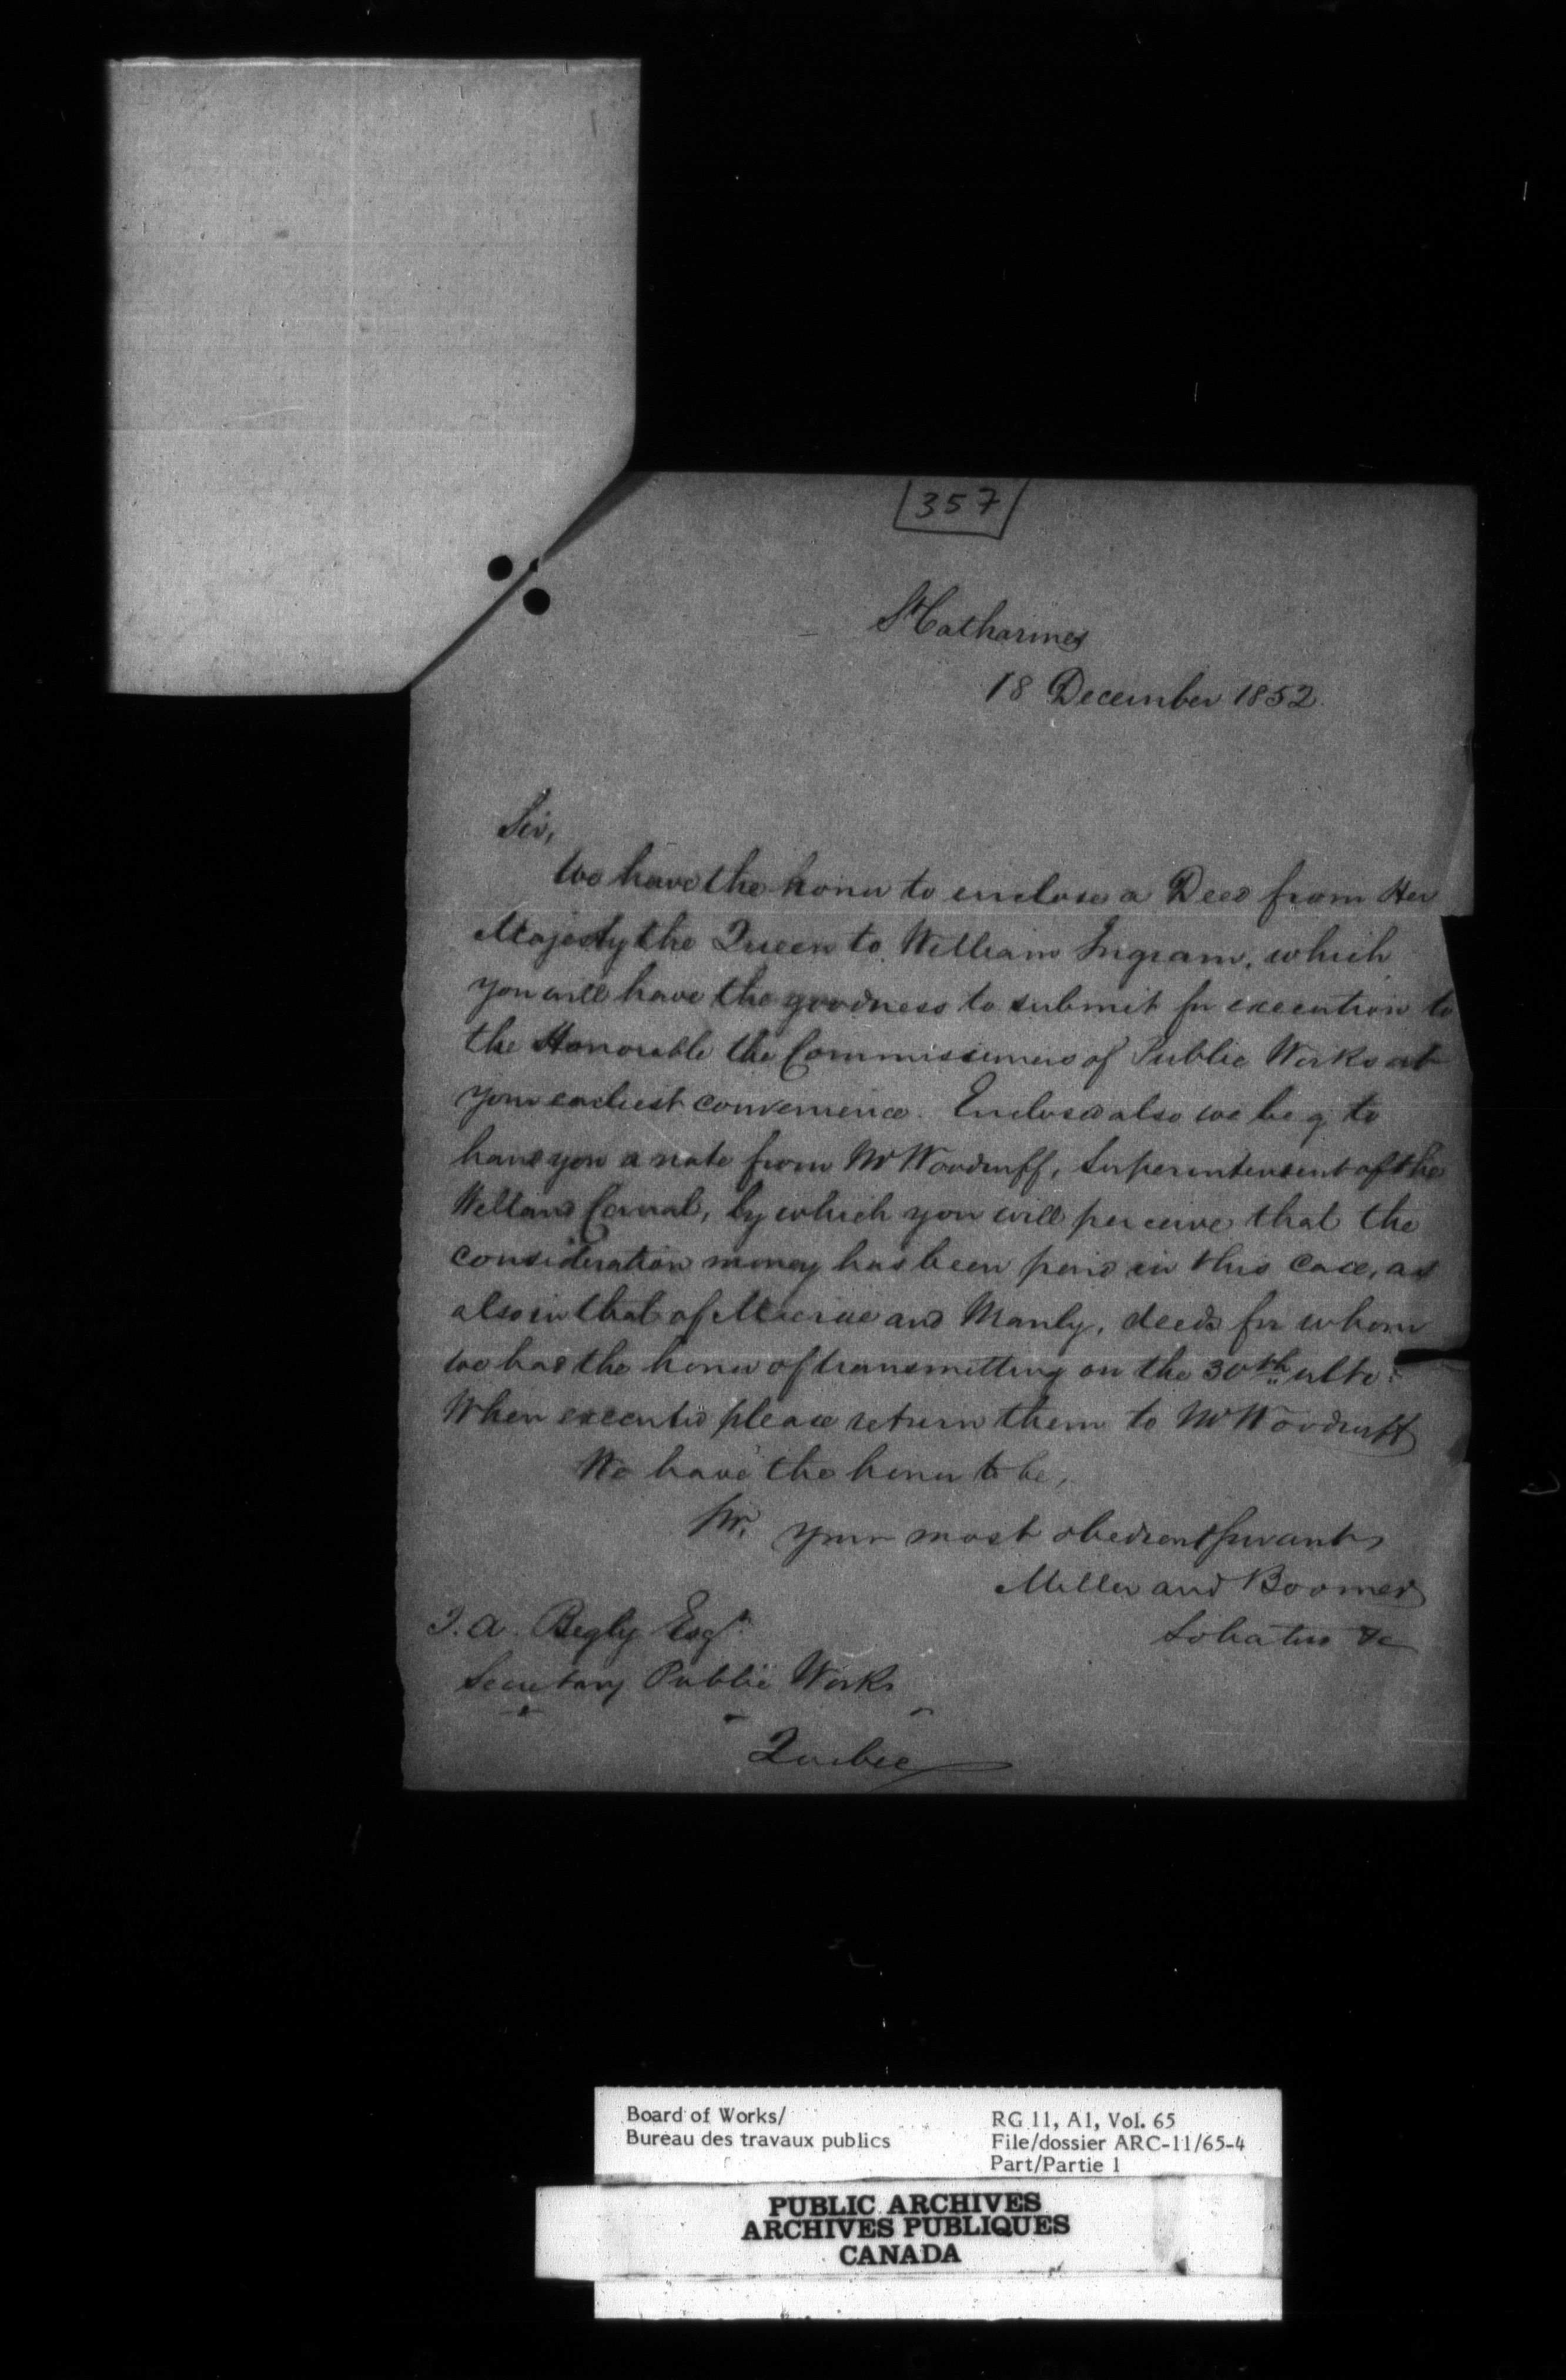 357
St Catharines
18 December 1852
Sir,
We have the honor to enclose a Deed from Her
Majesty the Queen to William Ingram, which
you will have the goodness to submit for execution to
the Honorable the Commissioners of Public Works at
your earliest convenience. Enclosed also we beg to
hand you a note from Mr Woodruff, Superintendent of the
Welland Canal, by which you will perceive that the
consideration money has been paid in this case, as
also in that of and Manly, deeds for whom
we had the honor of transmitting on the 30th ulto:
When executed please return them to Mr Woodruff
We have the honor to be,
Sir, your most obedient servants
Miller and Boomer
Solicitors &c
T. A. Begly Esqr.
Secretary Public Works
Quebec
Board of Works/
Bureau des travaux publics
RG 11, A1, Vol. 65
File/dossier ARC-11/65-4
Part/Partie 1
PUBLIC ARCHIVES
ARCHIVES PUBLIQUES
CANADA